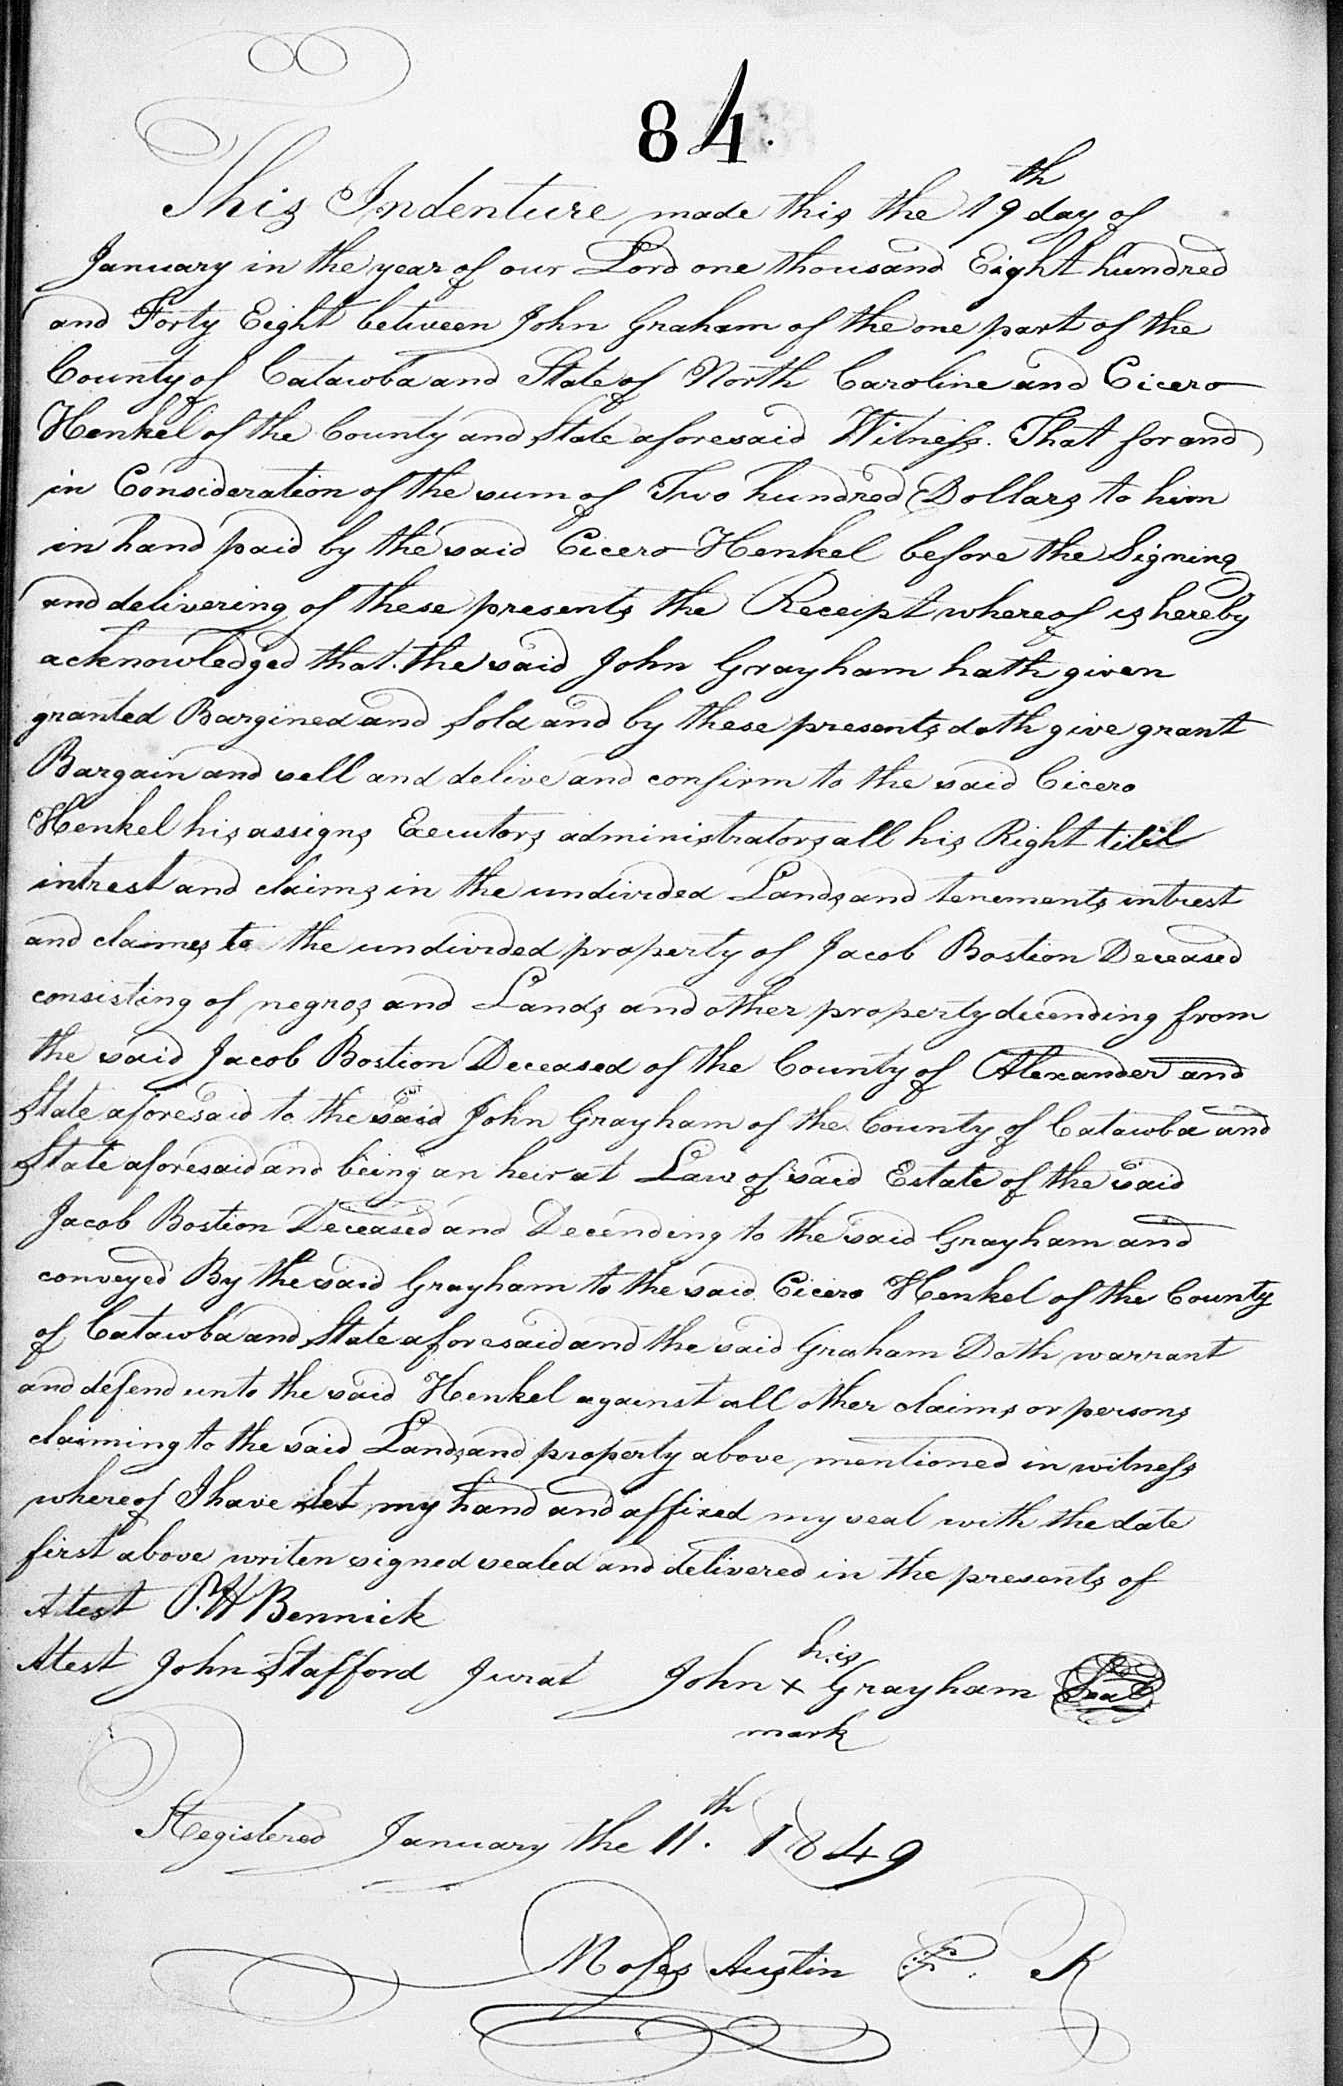 84.
This Indenture made this the 19th day of
January in the year of our Lord one thousand Eight hundred
and Forty Eight between John Graham of the one part of the
County of Catawba and State of North Caroline and Cicero
Henkel of the County and State aforesaid Witness. That for and
in Consideration of the sum of Two hundred Dollars to him
in hand paid by the said Cicero Henkel before the Signing
and delivering of these presents the Receipt whereof is hereby
acknowledged that the said John Grayham hath given
granted Bargined and Sold and by these presents doth give grant
Bargain and sell and delive and confirm to the said Cicero
Henkel his assigns Executors administrators all his Right titil
intrest and claims in the undivided Lands and tenements intrest
and claimes to the undivided property of Jacob Bostion Deceased
consisting of negros and Lands and other property decending from
the said Jacob Bostion Deceased of the County of Alexander and
State aforesaid to the said John Grayham of the County of Catawba and
State aforesaid and being an heir at Law of said Estate of the said
Jacob Bostion Deceased and Decending to the said Grayham and
conveyed By the said Grayham to the said Cicero Henkel of the County
of Catawba and State aforesaid and the said Graham Doth warrant
and defend unto the said Henkel against all other claims or persons
claiming to the said Lands and property above mentioned in witness
whereof I have Set my hand and affixed my seal with the date
first above writen signed sealed and delivered in the presents of
Attest P. H Bennick
Attest John Stafford Jurat John his x mark Grayham Seal
Registered January the 11th. 1849
Moses Austin P. R